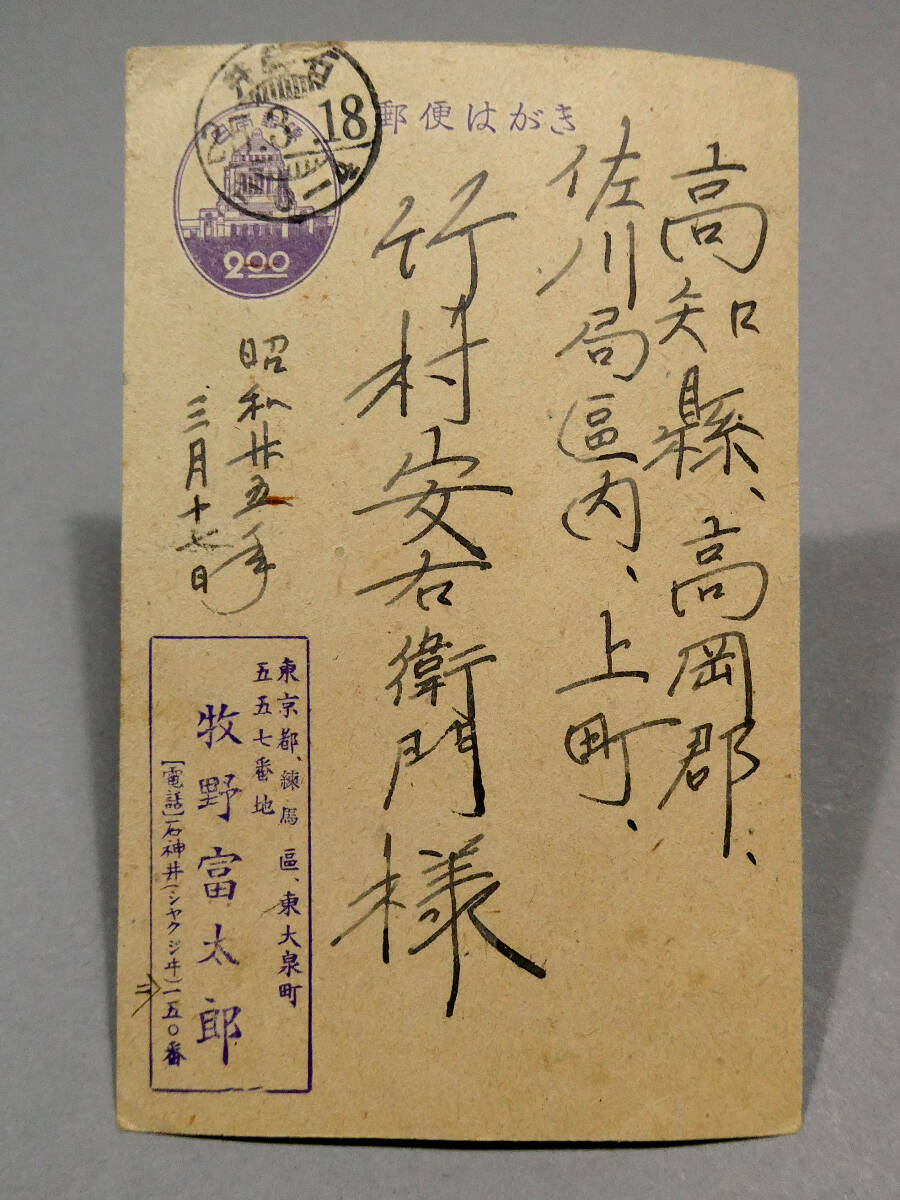 郵便はがき
高知縣、高岡郡、
佐川局區内、上町、
竹村安右衛門様
昭和廿五年
三月十七日
18
2.00
東京都、練馬 區、東大泉町
五五七番地
牧野富太郎
【電話】石神井(シャクジヰ)一五〇番